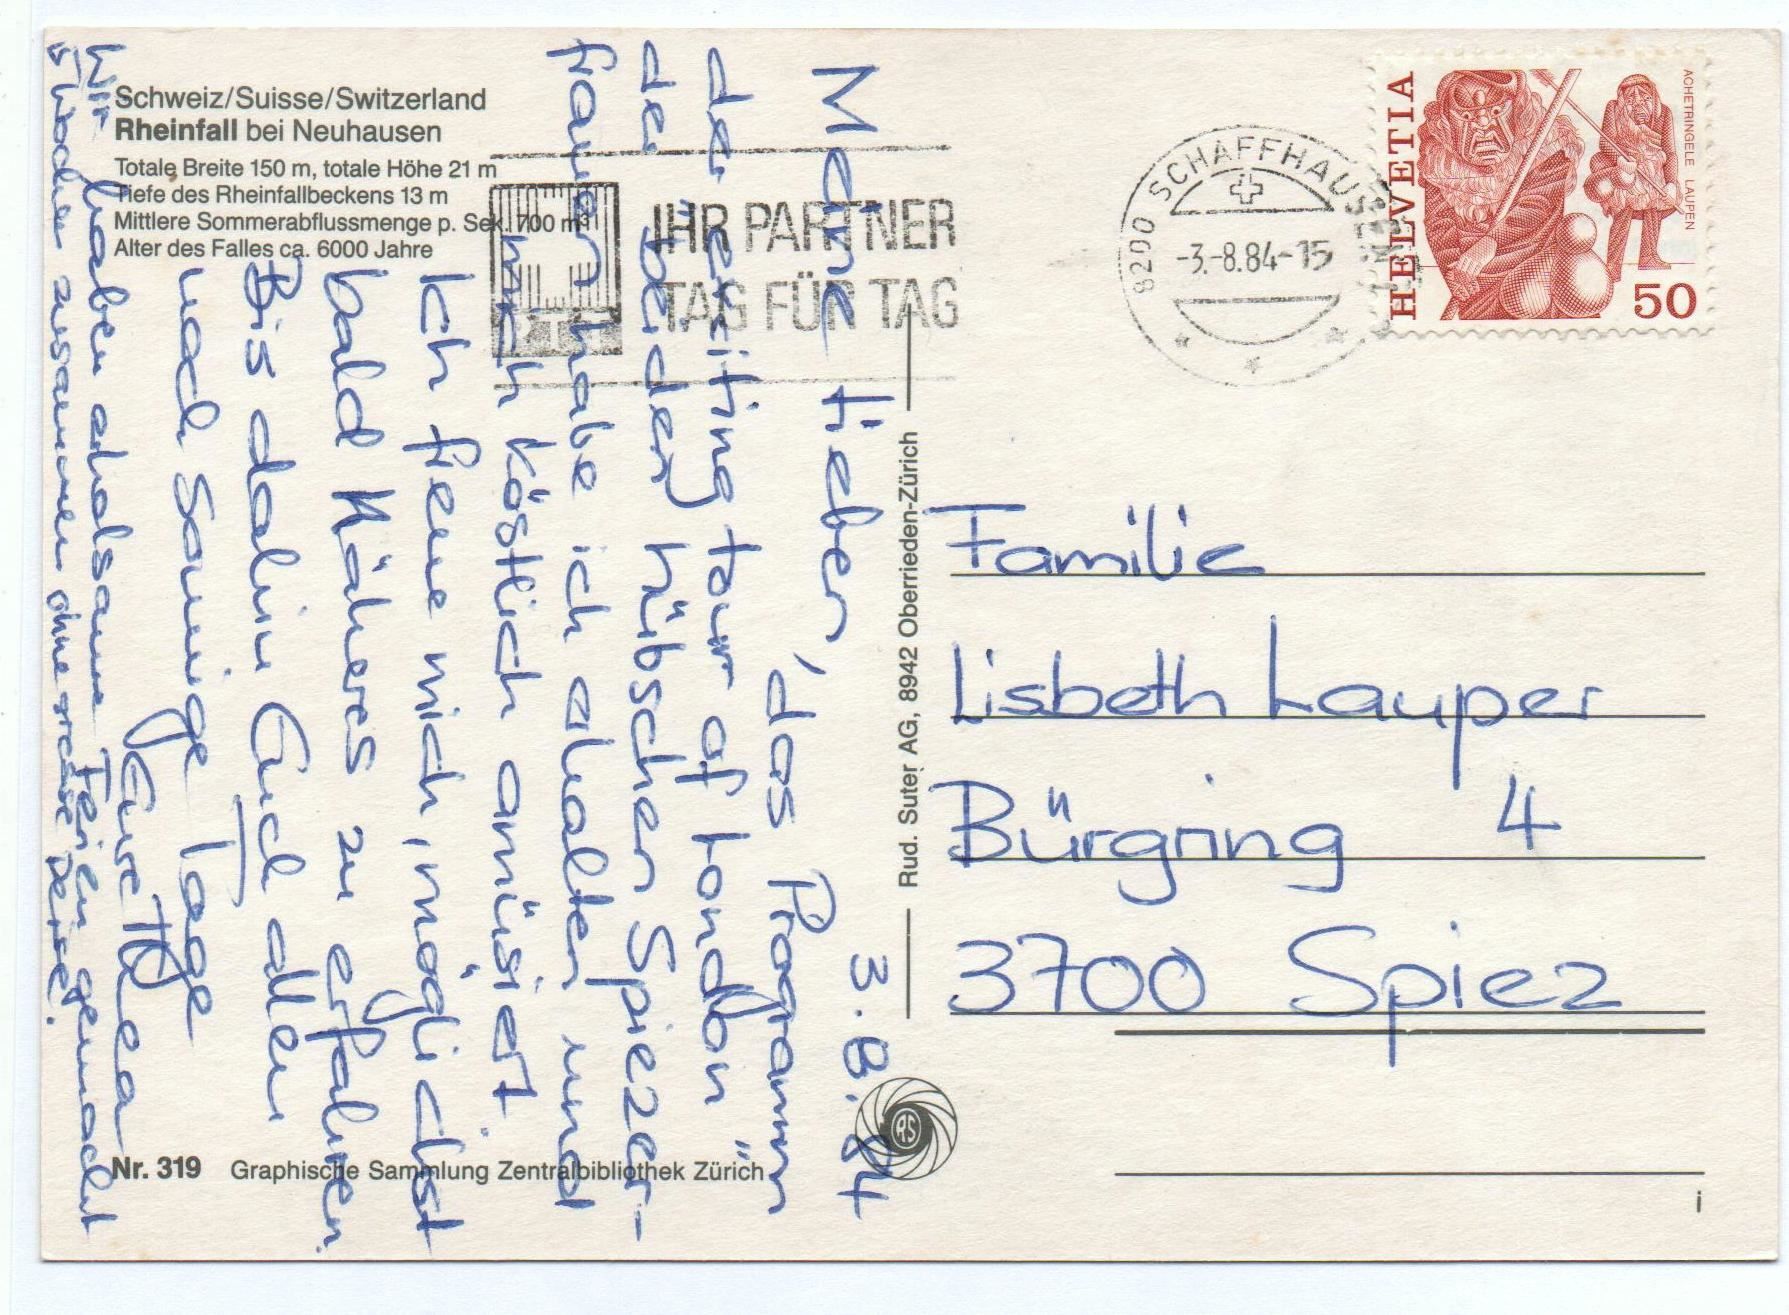 Schweiz/Suisse/Switzerland
Rheinfall bei Neuhausen
Totale Breite 150 m, totale Höhe 21 m
Tiefe des Rheinfallbeckens 13 m
Mittlere Sommerabflussmenge p. Sek. 700 m³
Alter des Falles ca. 6000 Jahre
IHR PARTNER
TAG FÜR TAG
PTT
8200 SCHAFFHAUSEN
-3.-8.84-15
HELVETIA
ACHETRINGELE LAUPEN
50
3. 8. 84
Meine Lieben,
das Programm
der "exiting tour of London"
der beiden hübschen Spiezer-
frauen habe ich erhalten und
mich köstlich amüsiert.
Ich freue mich, möglichst
bald Näheres zu erfahren.
Bis dahin Euch allen
noch sonnige Tage
Eure Thea
Wir haben erholsame Ferien gemacht
5 Wochen zusammen ohne grosse Reise.
Rud. Suter AG, 8942 Oberrieden-Zürich
Familie
Lisbeth Lauper
Bürgring 4
3700 Spiez
RS
Nr. 319 Graphische Sammlung Zentralbibliothek Zürich
i